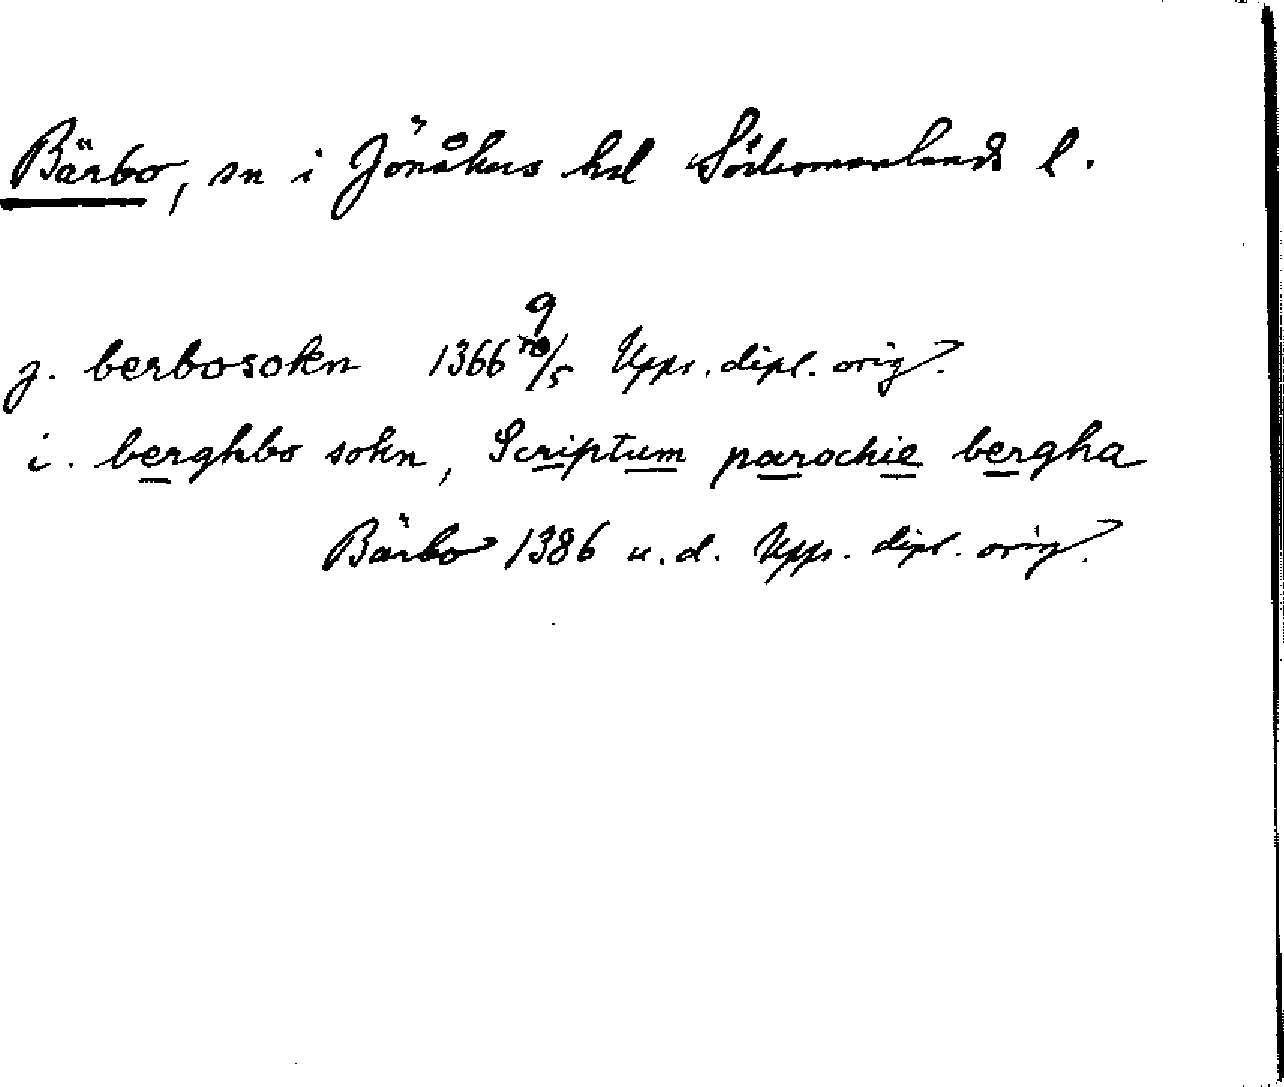 Bärbo, sn i Jönåkers hd Södermanlands l.
j. berbosokn 1366 9/5 Upps. dipl. orig.
i. berghbo sokn, Scriptum parochie bergha
Bärbo 1386 u. d. Upps. dipl. orig.